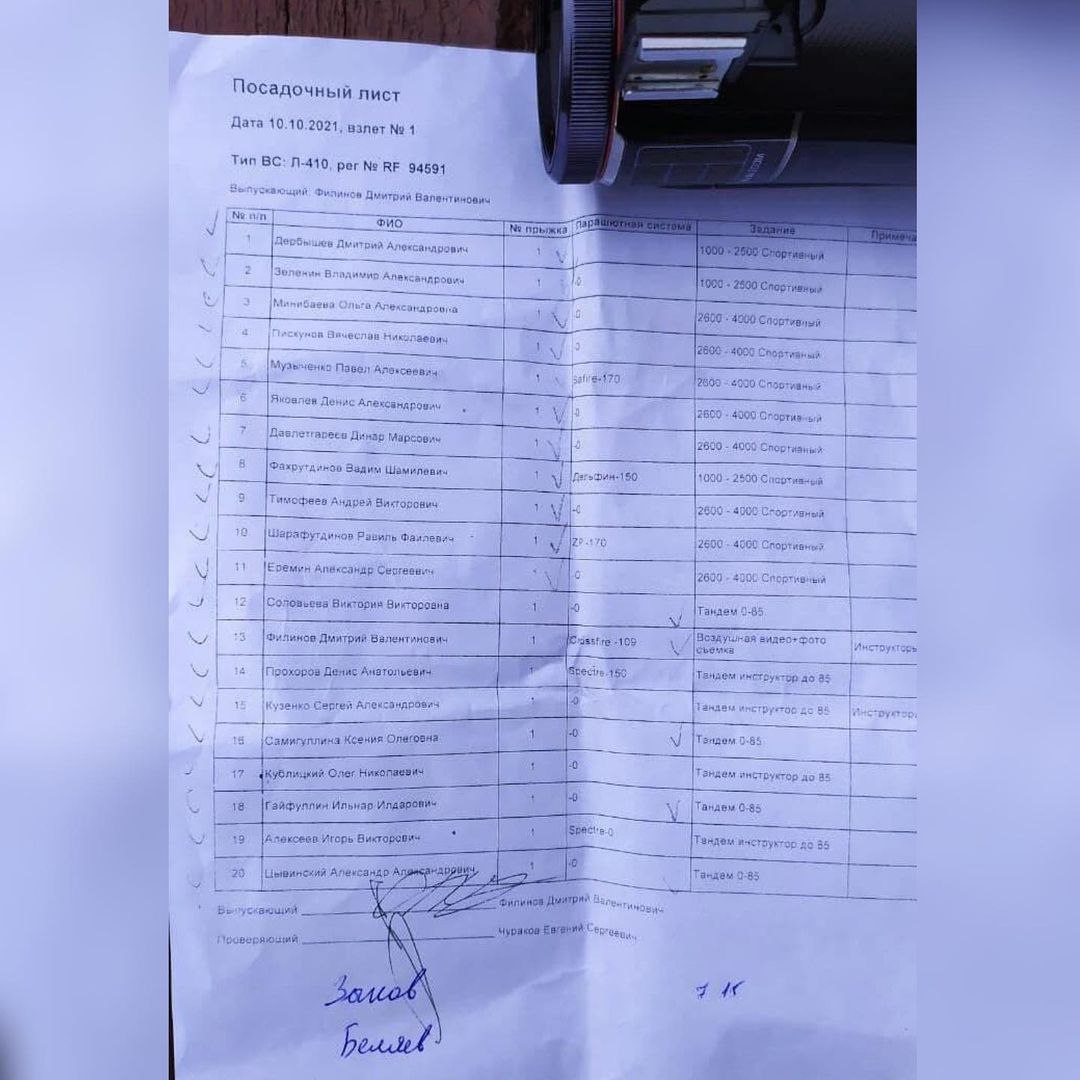 Посадочный лист
Дата 10.10.2021, взлет № 1
Тип ВС: Л-410, рег № RF 94591
Выпускающий: Филинов Дмитрий Валентинович
№ п/п ФИО № прыжка Парашютная система Задание Примеча
1 Дербышев Дмитрий Александрович 1 1000 - 2500 Спортивный
2 Зеленин Владимир Александрович 1 -0 1000 - 2500 Спортивный
3 Минибаева Ольга Александровна 1 -0 2600 - 4000 Спортивный
4 Пискунов Вячеслав Николаевич 1 -0 2600 - 4000 Спортивный
5 Музыченко Павел Алексеевич 1 Safire-170 2600 - 4000 Спортивный
6 Яковлев Денис Александрович 1 -0 2600 - 4000 Спортивный
7 Давлетгареев Динар Марсович 1 -0 2600 - 4000 Спортивный
8 Фахрутдинов Вадим Шамилевич 1 Дельфин-150 1000 - 2500 Спортивный
9 Тимофеев Андрей Викторович 1 -0 2600 - 4000 Спортивный
10 Шарафутдинов Равиль Фаилевич 1 ZP-170 2600 - 4000 Спортивный
11 Еремин Александр Сергеевич 1 -0 2600 - 4000 Спортивный
12 Соловьева Виктория Викторовна 1 -0 Тандем 0-85
13 Филинов Дмитрий Валентинович 1 Crossfire -109 Воздушная видео+фото съемка Инструкторы
14 Прохоров Денис Анатольевич 1 Spectre-150 Тандем инструктор до 85
15 Кузенко Сергей Александрович 1 -0 Тандем инструктор до 85 Инструктор
16 Самигуллина Ксения Олеговна 1 -0 Тандем 0-85
17 Кублицкий Олег Николаевич 1 -0 Тандем инструктор до 85
18 Гайфуллин Ильнар Илдарович 1 -0 Тандем 0-85
19 Алексеев Игорь Викторович 1 Spectre-0 Тандем инструктор до 85
20 Цывинский Александр Александрович 1 -0 Тандем 0-85
Выпускающий Филинов Дмитрий Валентинович
Проверяющий Чураков Евгений Сергеевич
Беляев